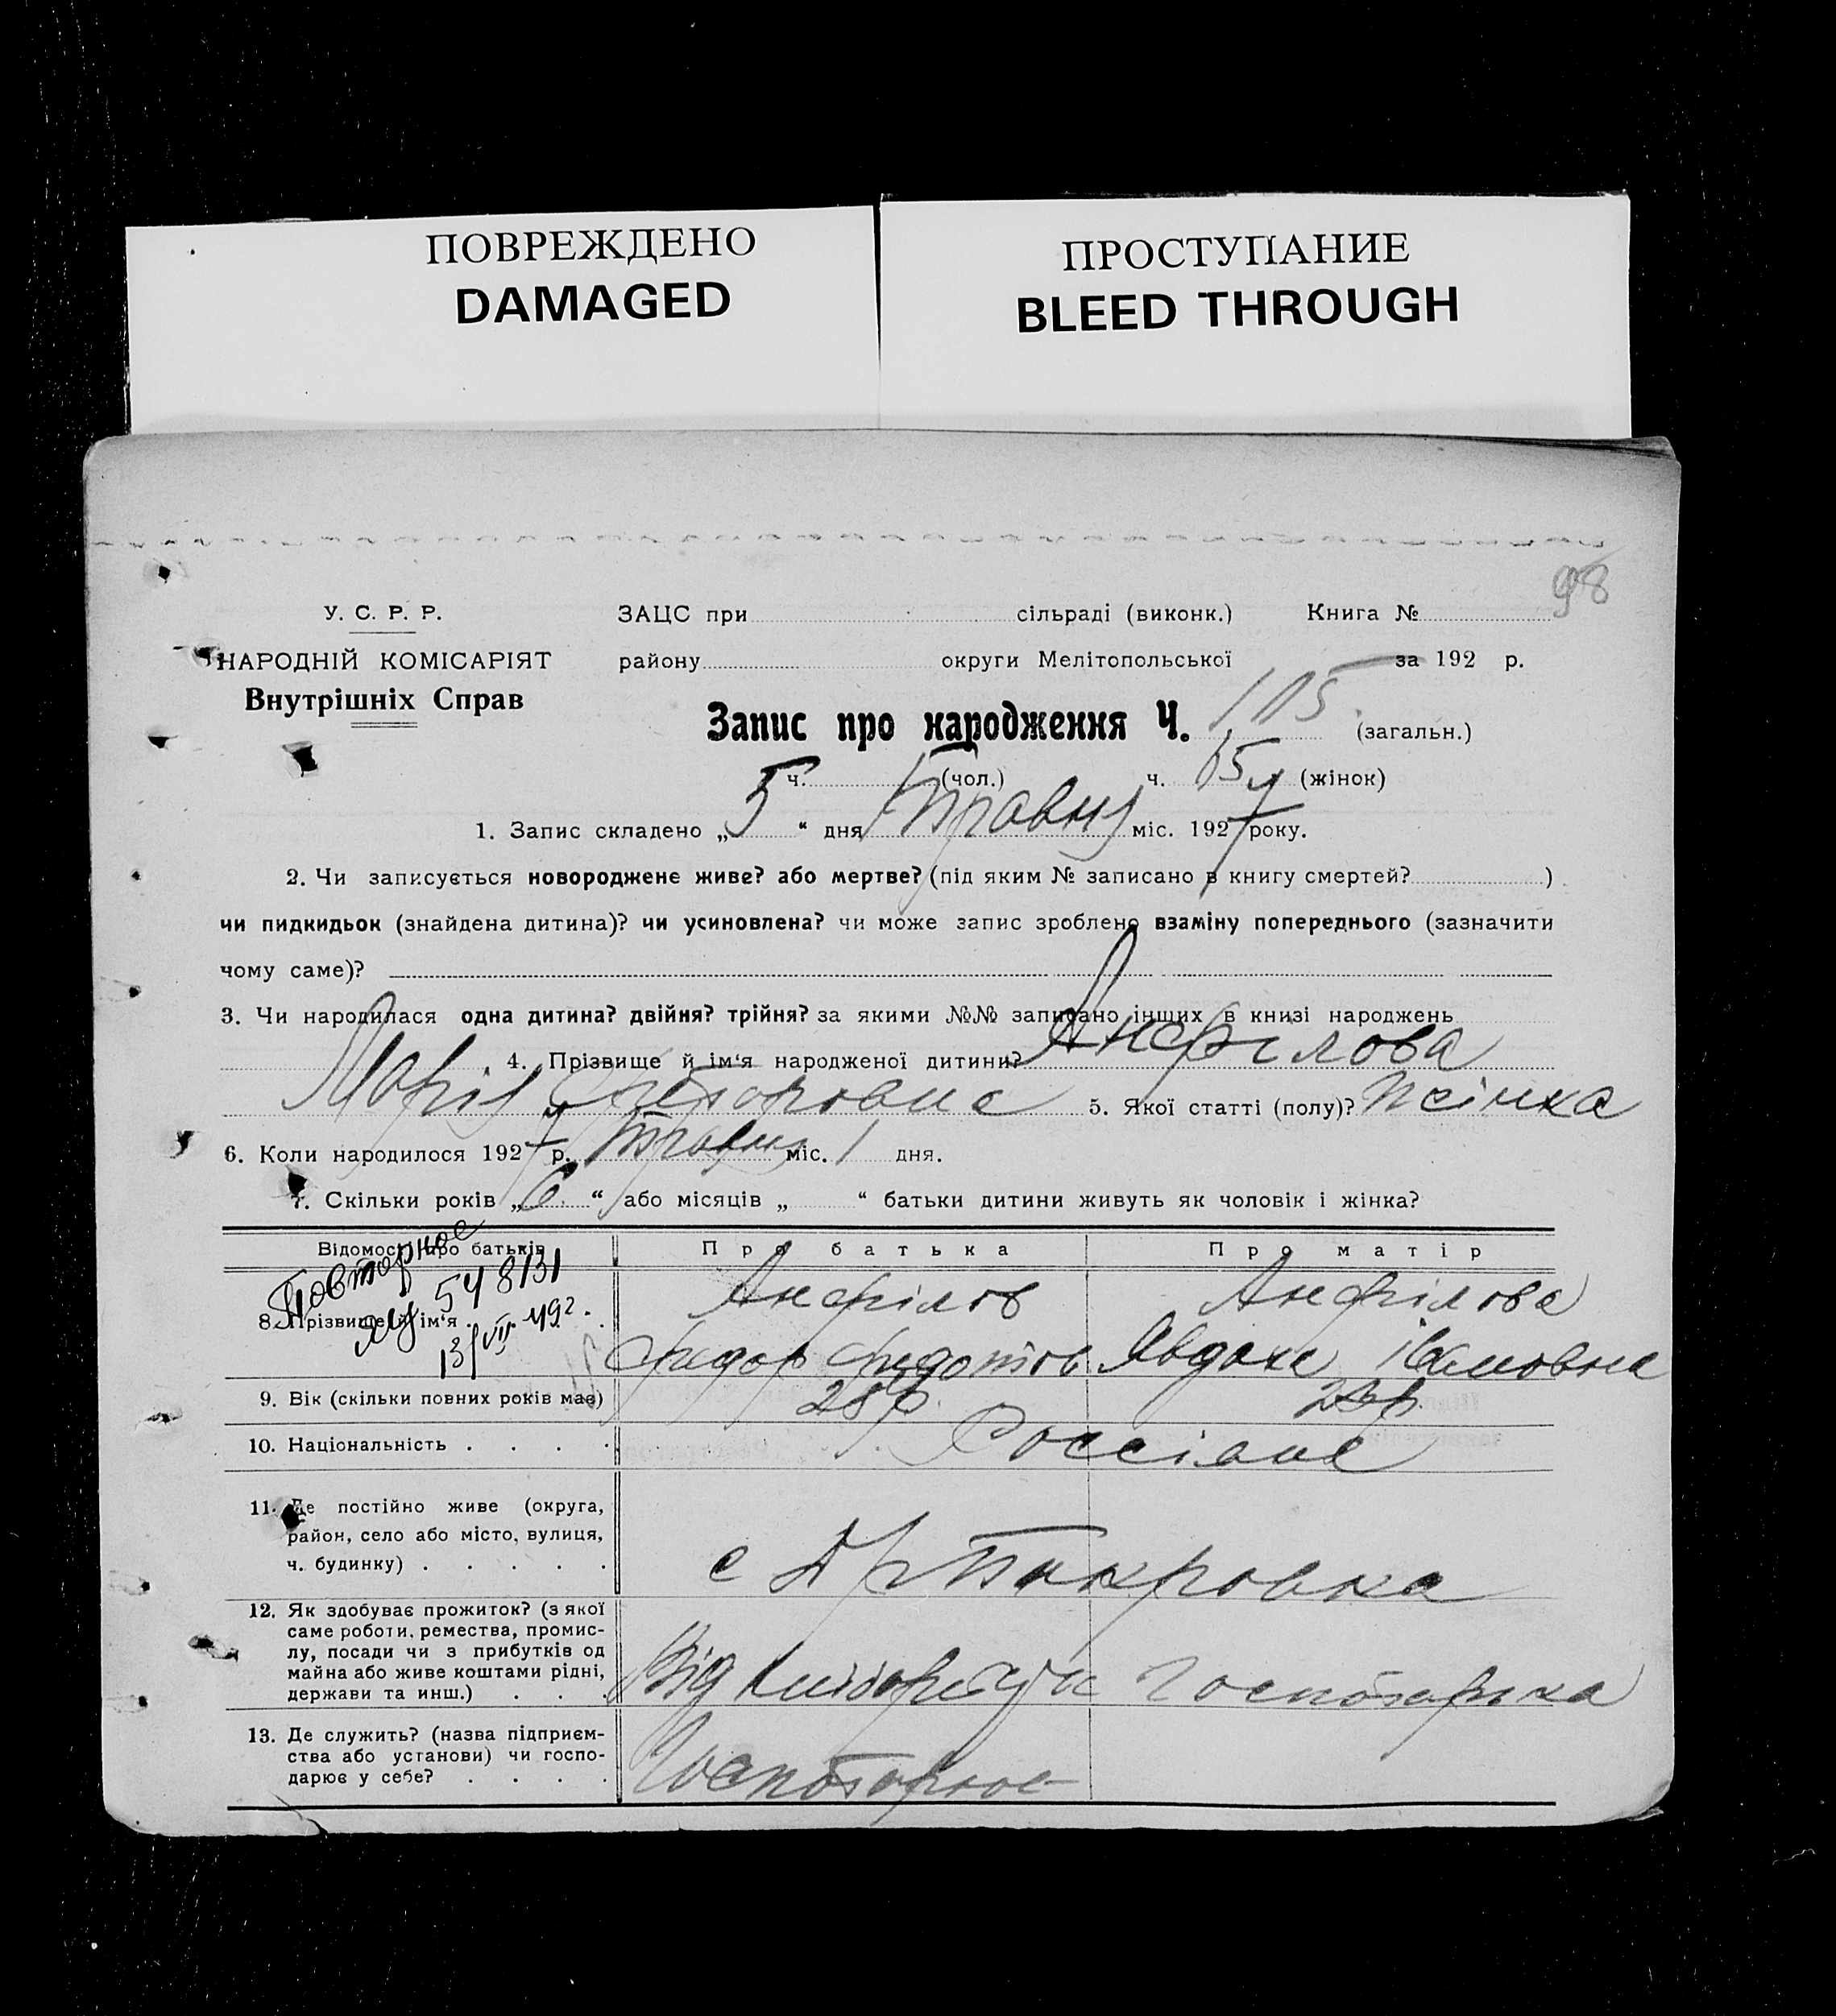 ПОВРЕЖДЕНО
DAMAGED
ПРОСТУПАНИЕ
BLEED THROUGH
98
У. С. Р. Р.
НАРОДНІЙ КОМІСАРІЯТ
Внутрішніх Справ
ЗАЦС при сільраді (виконк.) Книга №
району округи Мелітопольської за 192 р.
Запис про народження Ч. 105 (загальн.)
ч. (чол.) ч. 65 (жінок)
1. Запис складено „5“ дня Травня міс. 1927 року.
2. Чи записується новороджене живе? або мертве? (під яким № записано в книгу смертей? )
чи пидкидьок (знайдена дитина)? чи усиновлена? чи може запис зроблено взаміну попереднього (зазначити
чому саме)?
3. Чи народилася одна дитина? двійня? трійня? за якими №№ записано інших в книзі народжень
4. Прізвище й ім‘я народженої дитини? Анфілова
Марія Фидоровна 5. Якої статті (полу)? Жінка
6. Коли народилося 1927 р. Травня міс. 1 дня.
7. Скільки років „6“ або місяців „ “ батьки дитини живуть як чоловік і жінка?
Відомості про батьків Про батька Про матір
Повторное
ЯЦ 548131
13/VII 49г.
8. Прізвище й ім‘я Анфілов Анфілова
Фидор Фидотов Явдоха Івановна
9. Вік (скільки повних років має) 28р.
10. Національність Россіане
11. Де постійно живе (округа,
район, село або місто, вулиця,
ч. будинку)
с Покровка
12. Як здобуває прожиток? (з якої
саме роботи, ремества, промис-
лу, посади чи з прибутків од
майна або живе коштами рідні,
держави та инш.)
Від господарка
13. Де служить? (назва підприєм-
ства або установи) чи госпо-
дарює у себе?
Господарює